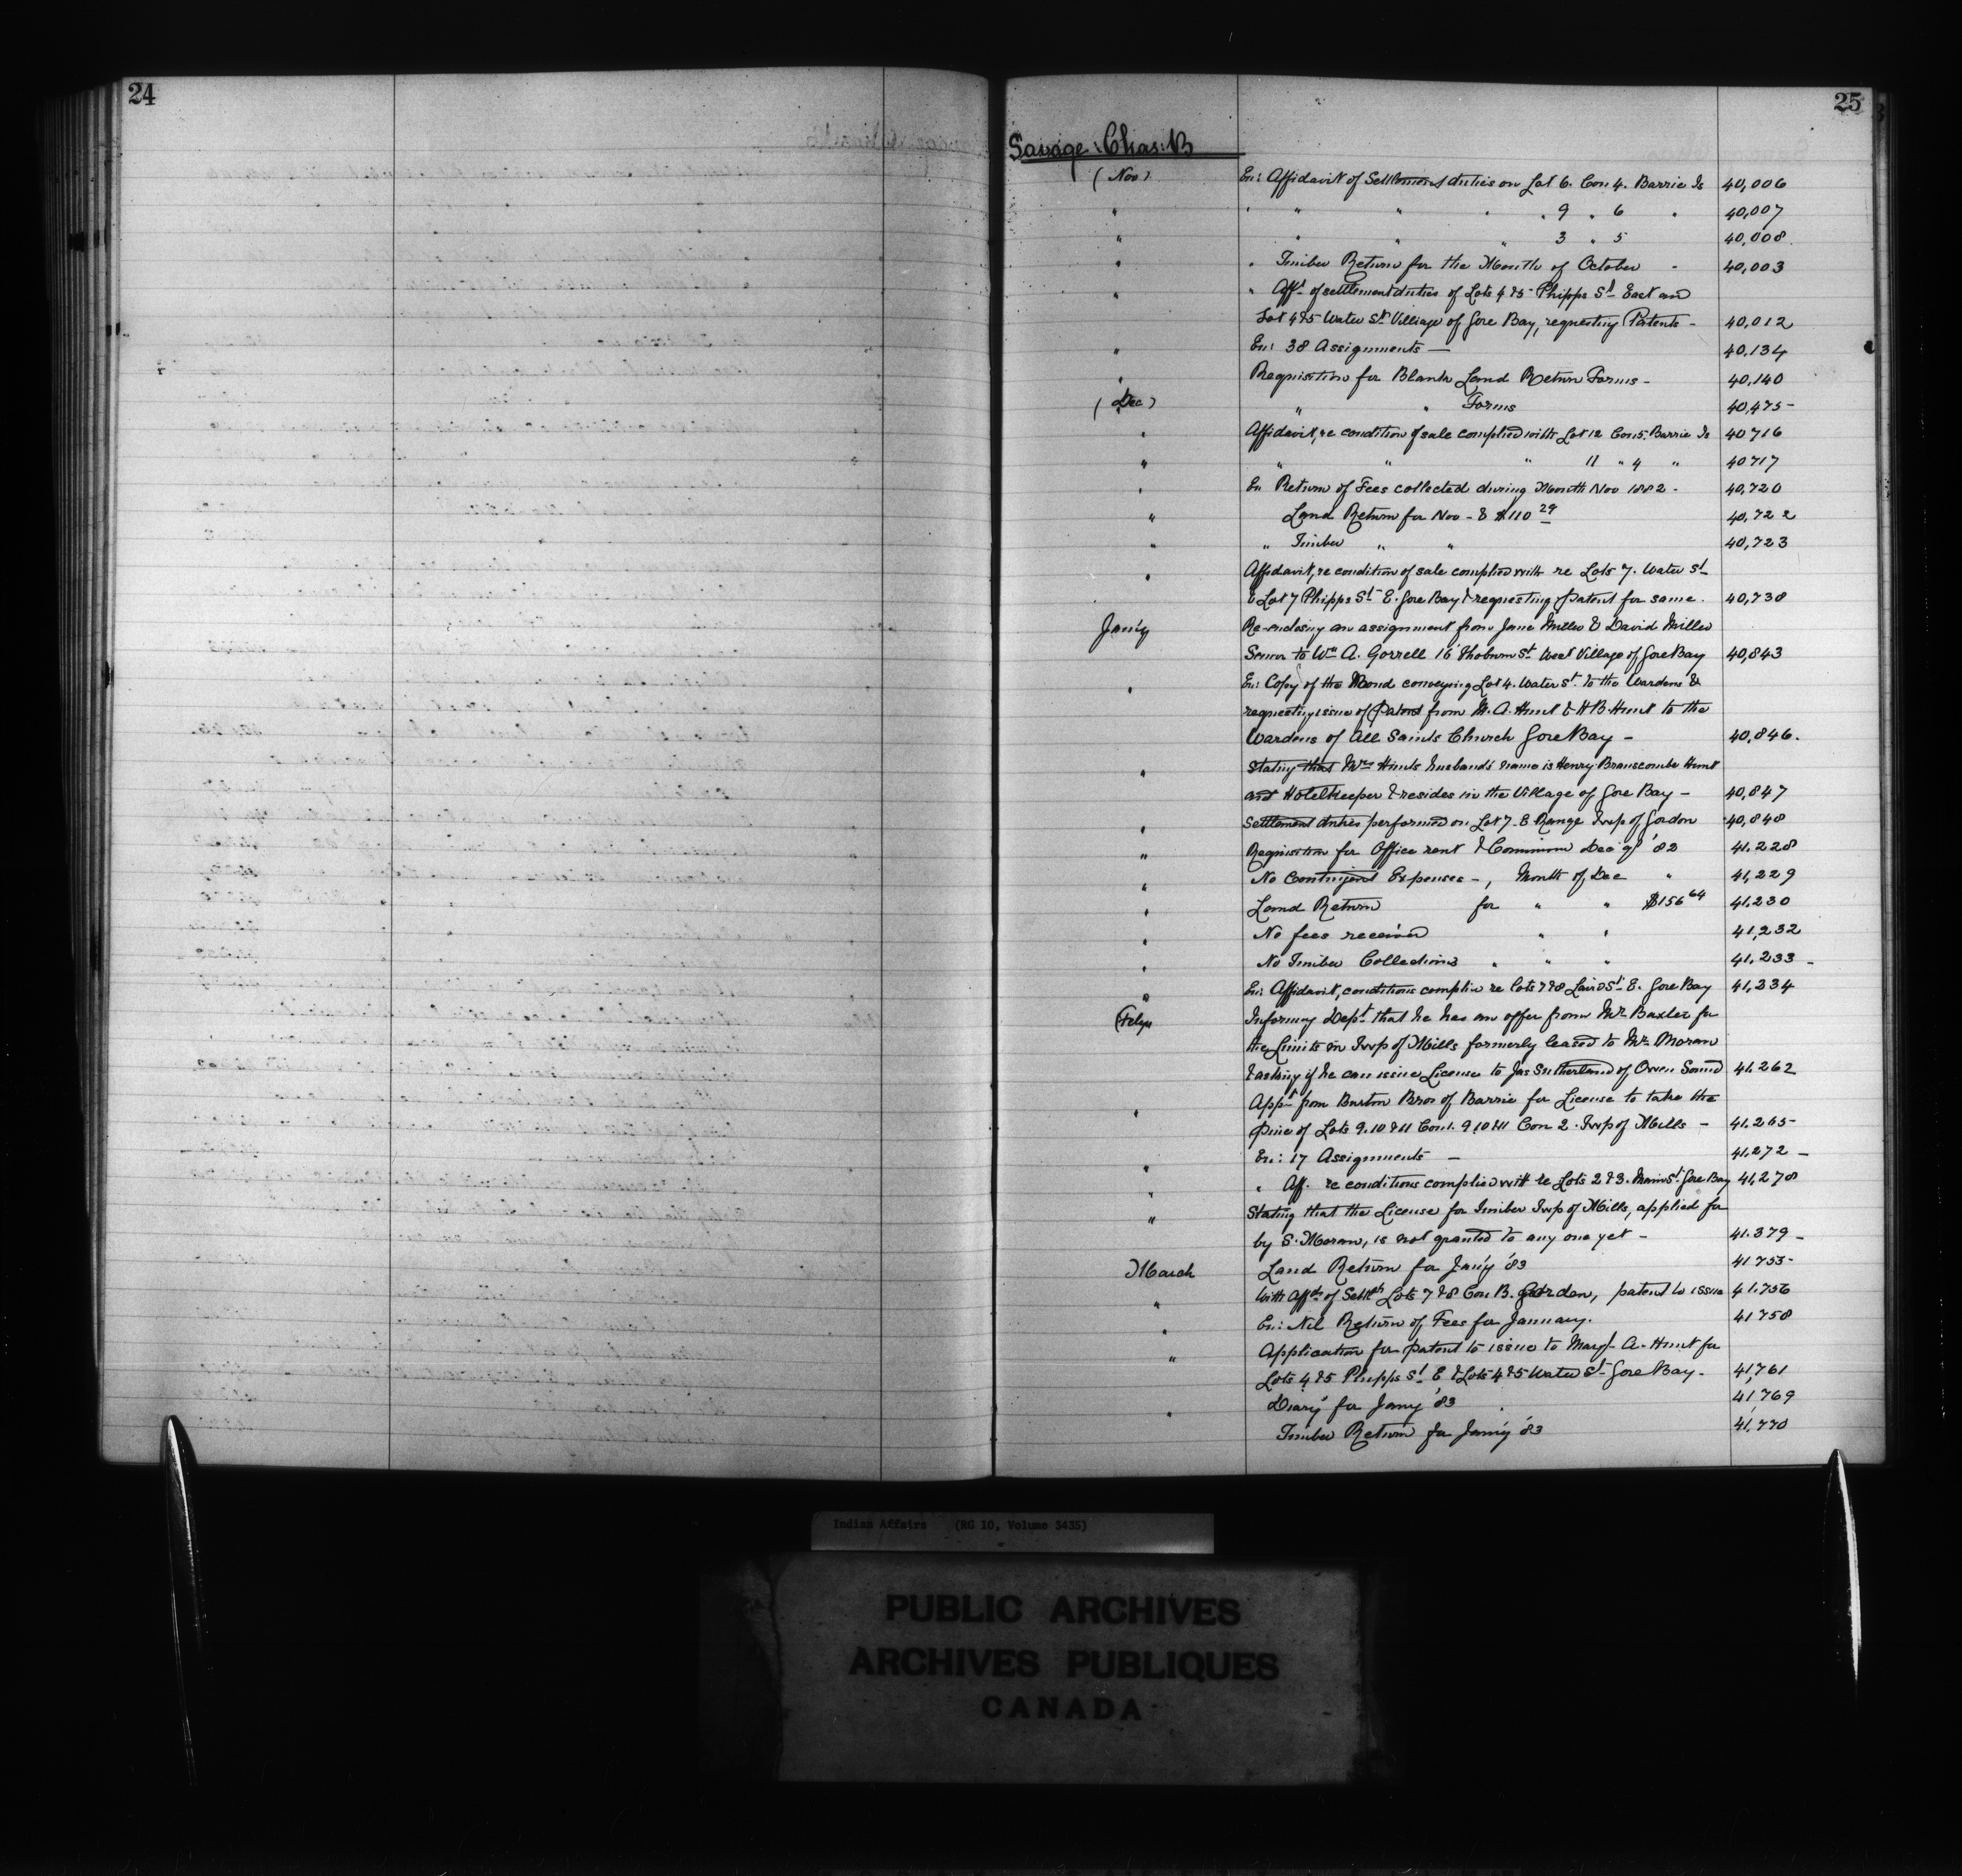 24
25
Savage : Chas: B
(Nov) En: Affidavit of Settlement duties on Lot 6. Con 4. Barrie Is 40,006
" " " " " " 9 " 6 " 40,007
" " " " 3 " 5 40,008
" " Timber Return for the Month of October - 40,003
" " Afft of settlement duties of Lots 4 & 5 Phipps St East and
Lot 4 & 5 Water St Village of Gore Bay, requesting Patents - 40,012
" En: 38 Assignments — 40,134
" Requisition for Blank Land Return Forms - 40,140
(Dec) " " Forms 40,475-
" Affidavit, re condition of sale complied with Lot 12 Con 5. Barrie Is 40716
" " " " 11 " 4 " 40717
" En Return of Fees collected during Month Nov 1882 - 40,720
" Land Return for Nov - & $110 29 40,722
" " Timber " " 40,723
" Affidavit, re condition of sale complied with re Lots 7. Water St
& Lot 7 Phipps St E. Gore Bay & requesting patent for same. 40,738
Jan'y Re-enclosing an assignment from Jane Miller & David Miller
Senior to Wm A. Gorrell 16 Thoburn St West Village of Gore Bay 40,843
" En: Copy of the Bond conveying Lot 4. Water St. to the Wardens &
requesting issue of Patent from M. A. Hunt & H B. Hunt to the
Wardens of All Saints Church Gore Bay - 40,846.
" Stating that Mrs Hunts husband's name is Henry Branscombe Hunt
and Hotelkeeper & resides in the Village of Gore Bay - 40,847
" Settlement duties performed on Lot 7. B Range Twp of Gordon 40,848
" Requisition for Office rent & Commission Dec qr '82 41.228
" No Contingent Expenses -, Month of Dec " 41,229
" Land Return for " " $156 64 41,230
" No fees received " " 41,232
" No Timber Collections " " " 41,233 -
" En: Affidavit, conditions complied re lots 7 & 8 Laird St E. Gore Bay 41,234
(Feby Informing Dept that he has an offer from Mr Baxter for
the Limits in Twp of Mills formerly leased to Mr Moran
& asking if he can issue License to Jas Sutherland of Owen Sound 41.262
" Appn from Burton Bros of Barrie for License to take the
pine of Lots 9.10 & 11 Con 1. 9 10 & 11 Con 2. Twp of Mills - 41.265-
" En: 17 Assignments - 41,272 -
" " Aff. re conditions complied with re Lots 2 & 3. Main St. Gore Bay 41,278
" Stating that the License for Timber Twp of Mills, applied for
by S. Moran, is not granted to any one yet - 41.379 -
March Land Return for Jan'y '83 41 755-
" With Affdt of Settlt Lots 7 & 8 Con B. Gordon, patent to issue 41.756
" En: Nil Return of Fees for January. 41 758
" Application for patent to issue to Margt A. Hunt for
Lots 4 & 5 Phipps St E & Lots 4 & 5 Water St Gore Bay. 41,761
Diary for Jan'y '83 41,769
" Timber Return for Jan'y '83 41,770
Indian Affairs (RG 10, Volume 3435)
PUBLIC ARCHIVES
ARCHIVES PUBLIQUES
CANADA